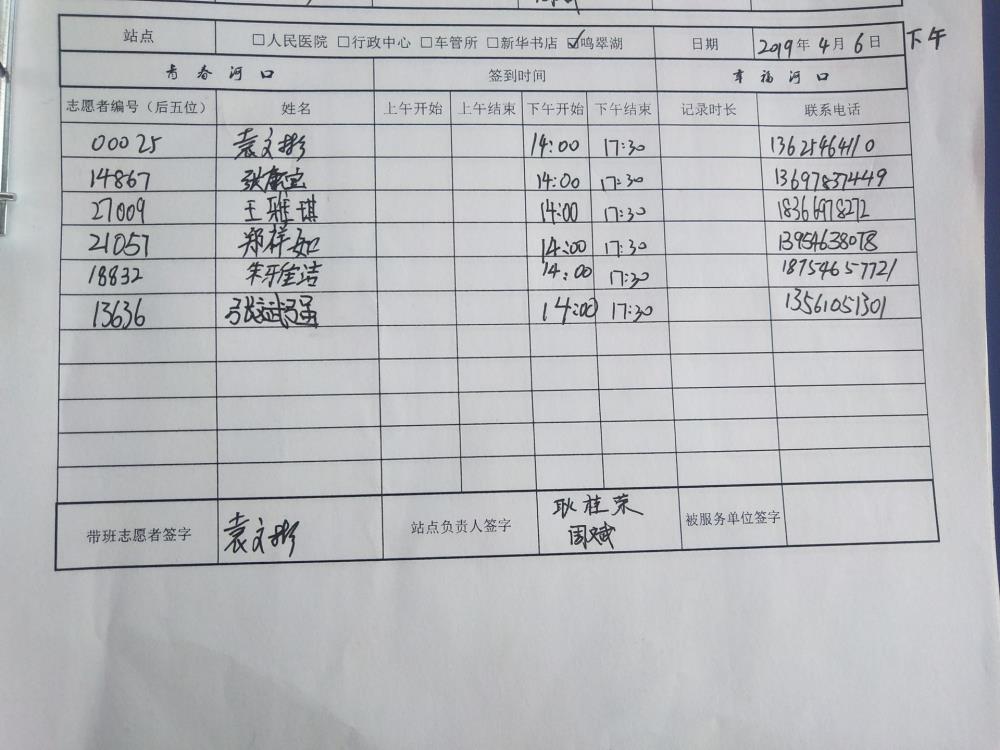 站点 □人民医院 □行政中心 □车管所 □新华书店 ☑鸣翠湖 日期 2019年4月6日 下午
青春河口 签到时间 幸福河口
志愿者编号（后五位） 姓名 上午开始 上午结束 下午开始 下午结束 记录时长 联系电话
00025 袁文彬 14:00 17:30 13625464110
14867 14:00 17:30 13697837449
27009 王雅琪 14:00 17:30 18366978272
21057 郑祥如 14:00 17:30 13954638078
18832 朱雅洁 14:00 17:30 18754657721
13636 14:00 17:30 13561051301
带班志愿者签字 袁文彬 站点负责人签字 耿桂荣 被服务单位签字
周斌